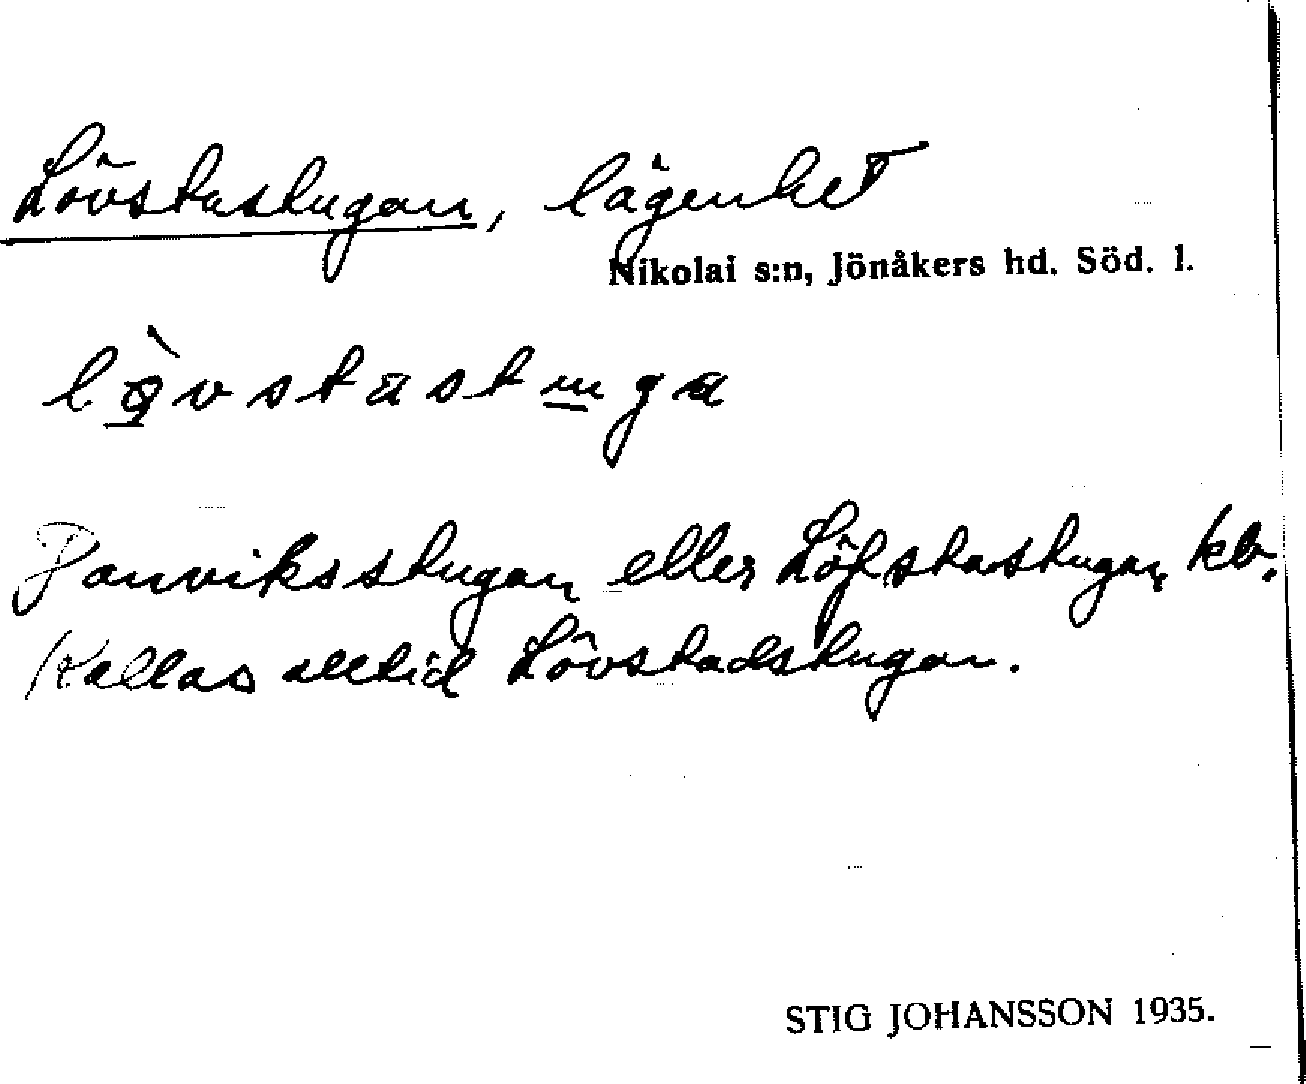 Lövstastugan, lägenhet
Nikolai s:n, Jönåkers hd. Söd. l.
lö̀vstastuga
Janviksstugan eller Löfstastugan, kb.
Kallas alltid Lövstadstugan.
STIG JOHANSSON 1935.